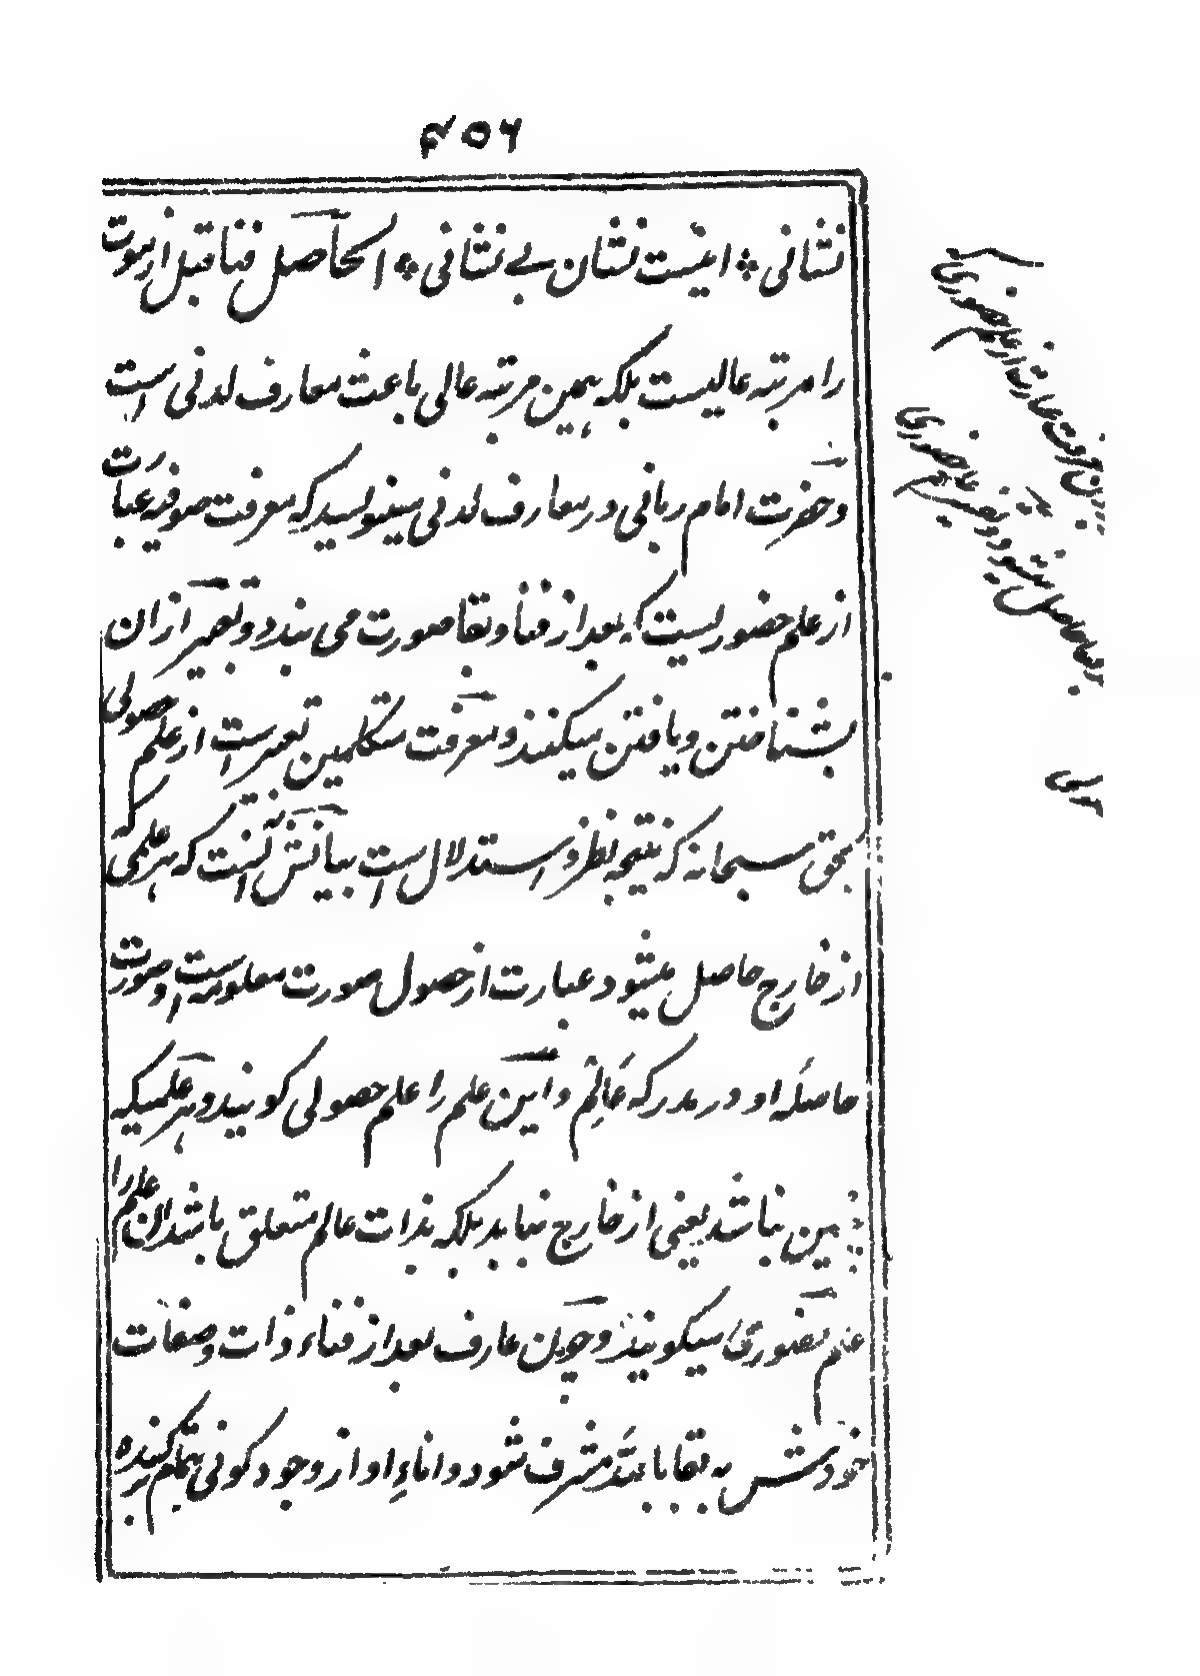 ۴۵۶
نشانی ❖ اینست نشان بے نشانی ❖ الحاصل فنا قبل از موت
را مرتبه عالیست بلکه همین مرتبه عالی باعث معارف لدنی است
و حضرت امام ربانی در معارف لدنی مینویسد که معرفت صوفیه عبارت
از علم حضوریست که بعد از فنا و بقا صورت می بندد و تعبیر از ان
بشناختن و یافتن میکنند و معرفت متکلمین تعبیر است از علم حصولی
بحق سبحانه که نتیجه نظر و استدلال است بیانش آنست که هر علمی که
از خارج حاصل میشود عبارت از حصول صورت معلومست و صورت
حاصله او در مدرکه عالم و این علم را علم حصولی گویند و هر علمیکه
چنین نباشد یعنی از خارج نیاید بلکه بذات عالم متعلق باشد ان علم را
علم حضوری میگویند و چون عارف بعد از فناء ذات و صفات
خودش به بقا بالله مشرف شود و اناء او از وجود کونی بتمام کنده
معرفت عبارت از علم حضوری
بقا حاصل میشود و تعبیر علم حضوری